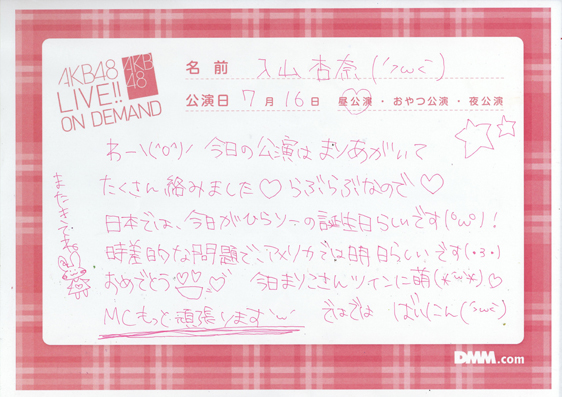 AKB48
LIVE!!
ON DEMAND
AKB
48
名前 入山杏奈(´ωく)
公演日 7月16日 昼公演・おやつ公演・夜公演
わーい(^o^)ノ 今日の公演は まりあがいて
たくさん絡みました♡ らぶらぶなので♡
日本では、今日がひらりーの誕生日らしいです(°ω°)!
時差的な問題で、アメリカでは明日らしいです(・3・)
おめでとう♡ 今日まりこさんツインに萌(*´ω`*)♡
MCもっと頑張ります ではでは ばいにん(´ωく)
またきてね
DMM.com